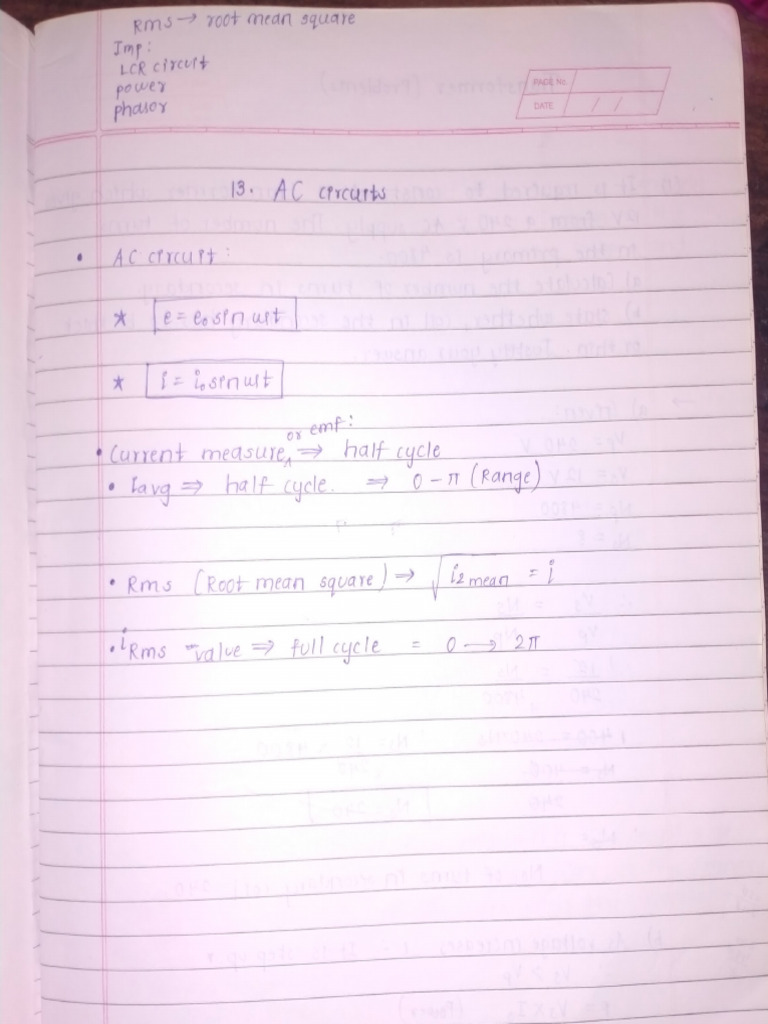 Rms → root mean square
Imp:
LCR circuit
power
phasor
PAGE No.
DATE / /
13. AC circuits
• AC circuit:
* e = e₀ sin ωt
* i = i₀ sin ωt
• Current measure or emf: ⇒ half cycle
• Iavg ⇒ half cycle. ⇒ 0 - π (Range)
• Rms (Root mean square) ⇒ √i₂ mean = i
• iRms value ⇒ full cycle = 0 → 2π